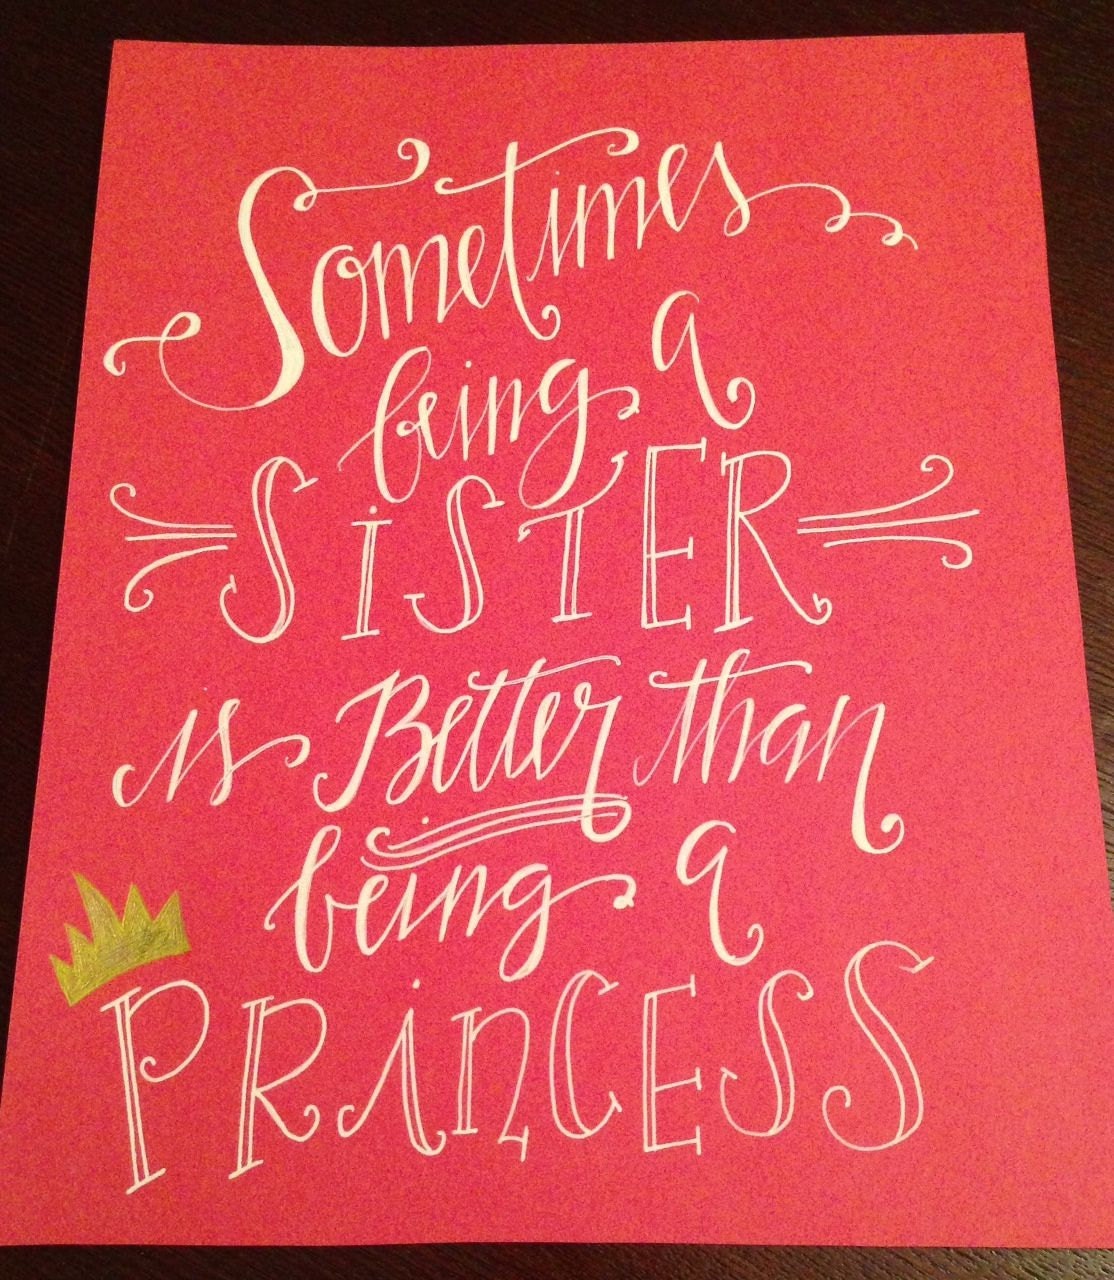 Sometimes
being a
SiSTER
is Better than
being a
PRiNCESS